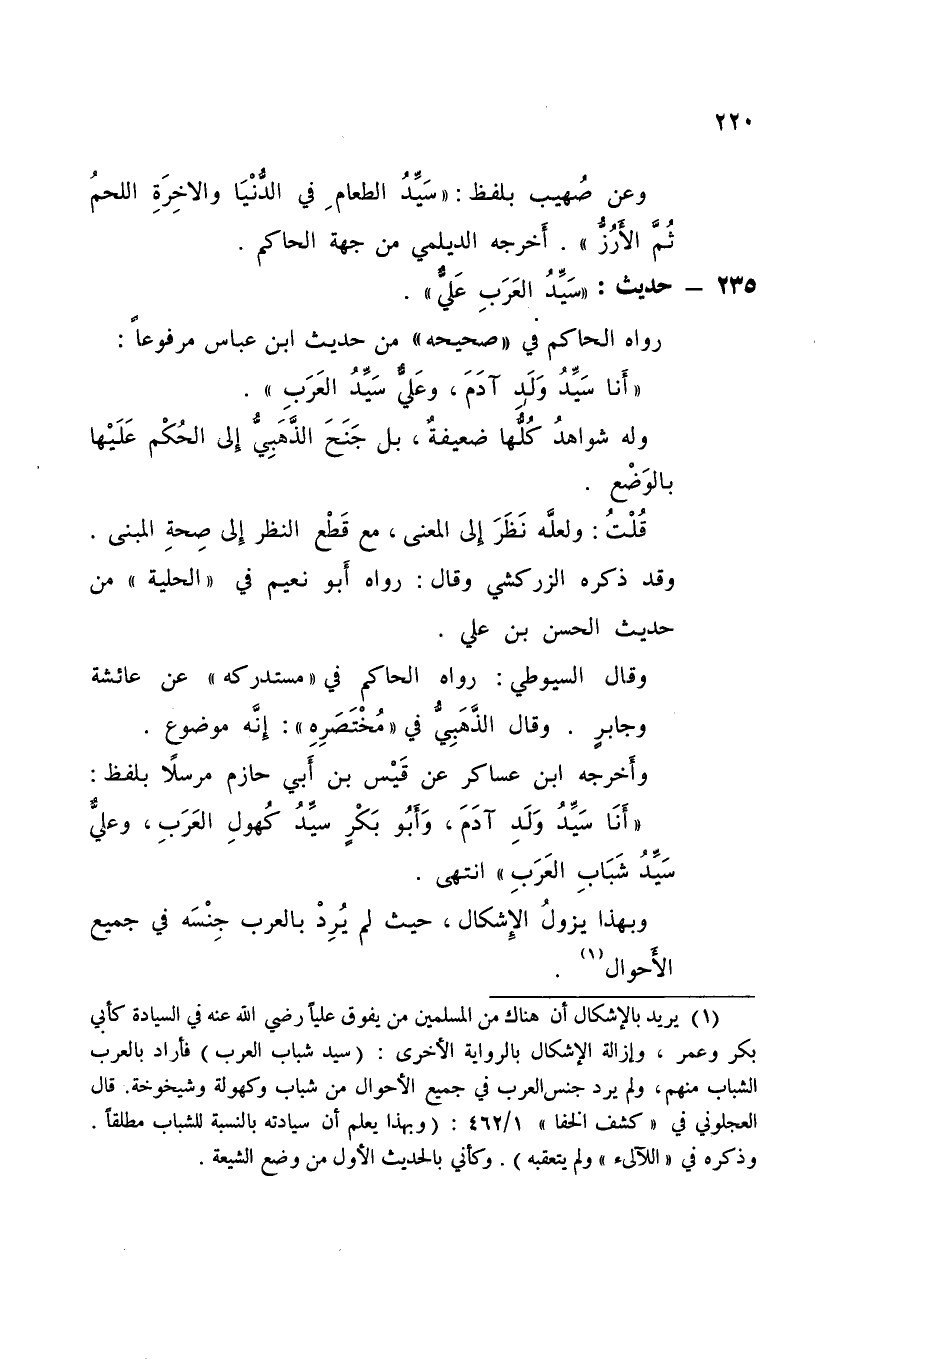 ٢٢٠
وعن صُهيب بلفظ : «سَيِّدُ الطعامِ في الدُّنْيَا والاخِرَةِ اللحمُ
ثُمَّ الأَرُزُّ » . أَخرجه الديلمي من جهة الحاكم .
٢٣٥ – حديث : «سَيِّدُ العَرَبِ عَلِيٌّ» .
رواه الحاكم في «صحيحه» من حديث ابن عباس مرفوعاً :
«أَنا سَيِّدُ وَلَدِ آدَمَ ، وعَلِيٌّ سَيِّدُ العَرَبِ » .
وله شواهدُ كُلُّها ضعيفةٌ ، بل جَنَحَ الذَّهَبِيُّ إِلى الحُكْمِ عَلَيْها
بالوَضْعِ .
قُلْتُ : ولعلَّه نَظَرَ إِلى المعنى ، مع قَطْعِ النظر إِلى صِحةِ المبنى .
وقد ذكره الزركشي وقال : رواه أَبو نعيم في «الحلية » من
حديث الحسن بن علي .
وقال السيوطي : رواه الحاكم في «مستدركه» عن عائشة
وجابرٍ . وقال الذَّهَبِيُّ في «مُخْتَصَرِهِ» : إِنَّه موضوع .
وأَخرجه ابن عساكر عن قَيْس بن أَبي حازم مرسلًا بلفظ :
«أَنَا سَيِّدُ وَلَدِ آدَمَ ، وَأَبُو بَكْرٍ سيِّدُ كُهولِ العَرَبِ ، وعليٌّ
سَيِّدُ شَبَابِ العَرَبِ» انتهى .
وبهذا يزولُ الإِشكال ، حيث لم يُرِدْ بالعرب جِنْسَه في جميع
الأَحوال(١) .
(١) يريد بالإشكال أن هناك من المسلمين من يفوق علياً رضي الله عنه في السيادة كأبي
بكر وعمر ، وإزالة الإشكال بالرواية الأخرى : ( سيد شباب العرب ) فأراد بالعرب
الشباب منهم، ولم يرد جنس العرب في جميع الأحوال من شباب وكهولة وشيخوخة. قال
العجلوني في « كشف الخفا » ٤٦٢/١ : ( وبهذا يعلم أن سيادته بالنسبة للشباب مطلقاً .
وذكره في « اللآلىء » ولم يتعقبه ) . وكأني بالحديث الأول من وضع الشيعة .